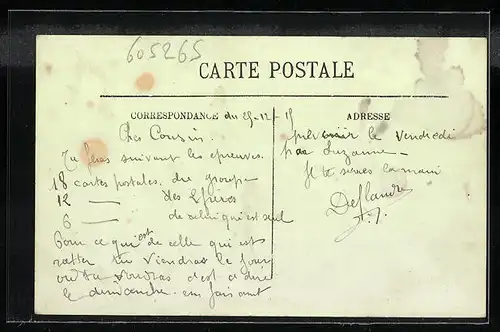 605265
CARTE POSTALE
CORRESPONDANCE du 29-12-15
Cher Cousin.
Tu feras suivant les épreuves.
18 cartes postales du groupe
12 — des 2 frères
6 — de celui qui est seul
Pour ce qui est de celle qui est
rattée tu viendras le jour
où tu voudras c'est à dire
le dimanche en faisant
ADRESSE
prévenir le vendredi
par Suzanne
Je te serre la main
Deflandre